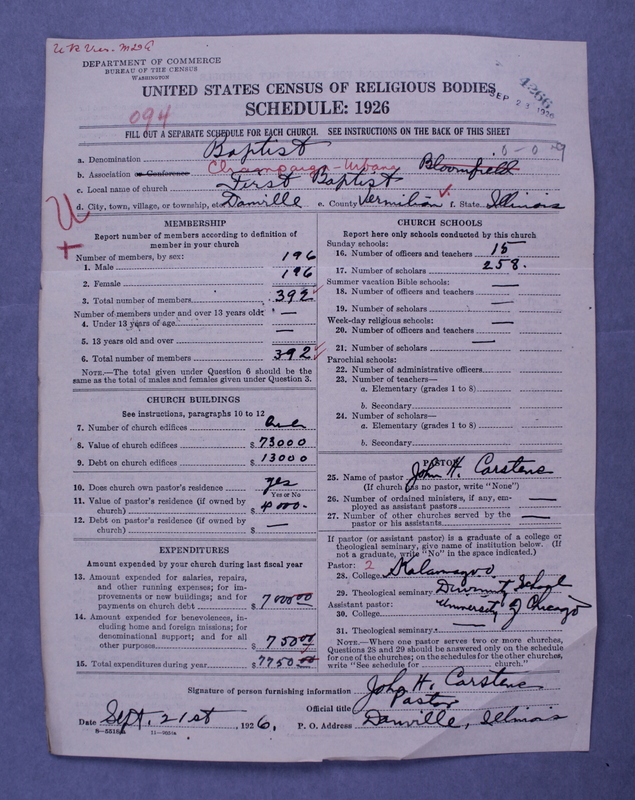 DEPARTMENT OF COMMERCE
BUREAU OF THE CENSUS
WASHINGTON
4266
SEP 23 1926
UNITED STATES CENSUS OF RELIGIOUS BODIES
SCHEDULE: 1926
094
FILL OUT A SEPARATE SCHEDULE FOR EACH CHURCH. SEE INSTRUCTIONS ON THE BACK OF THIS SHEET
a. Denomination Baptist
b. Association or Conference Champaign-Urbana Bloomfield
c. Local name of church First Baptist
d. City, town, village, or township, etc. Danville e. County Vermilion f. State Illinois
U
+
MEMBERSHIP
Report number of members according to definition of
member in your church
Number of members, by sex:
1. Male 196
2. Female 196
3. Total number of members 392
Number of members under and over 13 years old:
4. Under 13 years of age —
5. 13 years old and over —
6. Total number of members 392
NOTE.—The total given under Question 6 should be the
same as the total of males and females given under Question 3.
CHURCH BUILDINGS
See instructions, paragraphs 10 to 12
7. Number of church edifices One
8. Value of church edifices $ 73000
9. Debt on church edifices $ 13000
10. Does church own pastor's residence? yes
Yes or No
11. Value of pastor's residence (if owned by
church) $ 4000.
12. Debt on pastor's residence (if owned by
church) $ —
EXPENDITURES
Amount expended by your church during last fiscal year
13. Amount expended for salaries, repairs,
and other running expenses; for im-
provements or new buildings; and for
payments on church debt $ 7000 00
14. Amount expended for benevolences, in-
cluding home and foreign missions; for
denominational support; and for all
other purposes $ 750 00
15. Total expenditures during year $ 7750 00
CHURCH SCHOOLS
Report here only schools conducted by this church
Sunday schools:
16. Number of officers and teachers 15
17. Number of scholars 258.
Summer vacation Bible schools:
18. Number of officers and teachers —
19. Number of scholars —
Week-day religious schools:
20. Number of officers and teachers —
21. Number of scholars —
Parochial schools:
22. Number of administrative officers
23. Number of teachers—
a. Elementary (grades 1 to 8)
b. Secondary
24. Number of scholars—
a. Elementary (grades 1 to 8)
b. Secondary
PASTOR
25. Name of pastor John H. Carstens
(If church has no pastor, write "None")
26. Number of ordained ministers, if any, em-
ployed as assistant pastors —
27. Number of other churches served by the
pastor or his assistants —
If pastor (or assistant pastor) is a graduate of a college or
theological seminary, give name of institution below. (If
not a graduate, write "No" in the space indicated.)
Pastor: 2
28. College Kalamazoo
29. Theological seminary Divinity School
Assistant pastor: University of Chicago
30. College —
31. Theological seminary
NOTE.—Where one pastor serves two or more churches,
Questions 28 and 29 should be answered only on the schedule
for one of the churches; on the schedules for the other churches,
write "See schedule for church."
Signature of person furnishing information John H. Carstens
Official title Pastor
Date Sept. 21st, 1926. P. O. Address Danville, Illinois
8-5518a 11-9051a